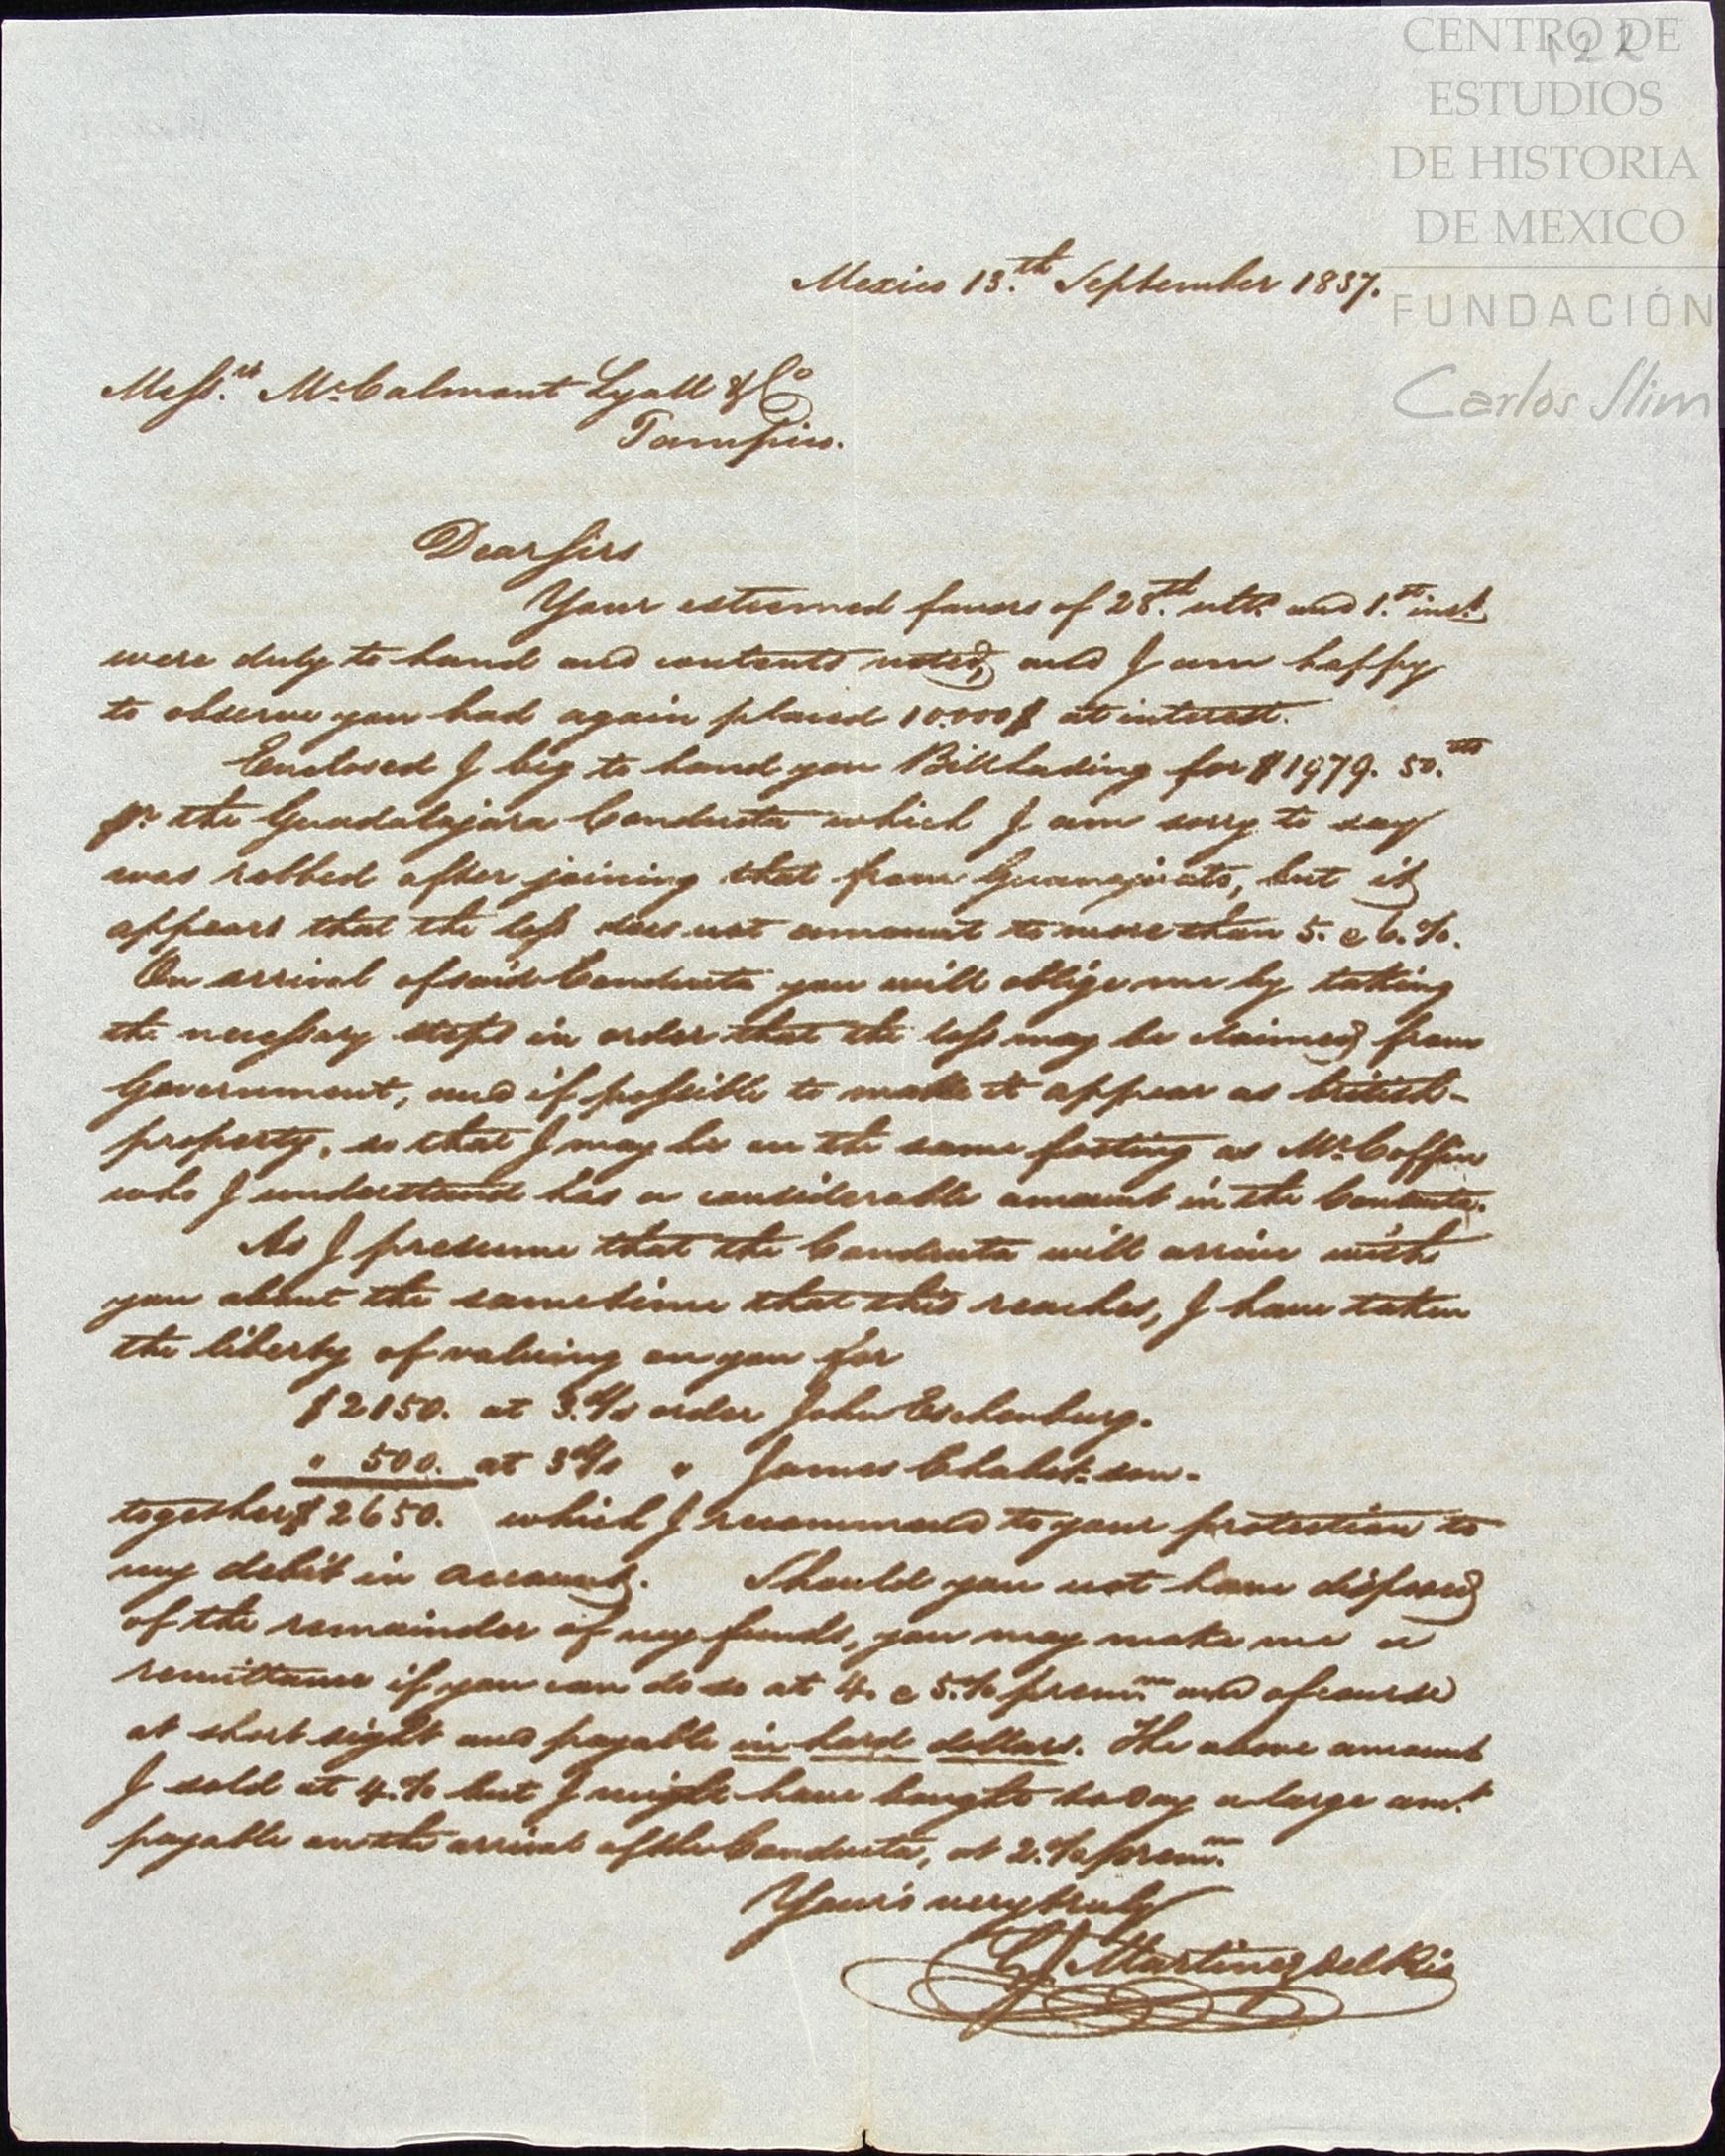 CENTRO DE
ESTUDIOS
DE HISTORIA
DE MEXICO
FUNDACIÓN
Carlos Slim
122
Mexico 13.th September 1837.
Messrs. McCalmont Lyall & Co
Tampico.
Dear Sirs
Your esteemed favors of 28.th ulto. and 1.st inst.
were duly to hand and contents noted, and I am happy
to observe you had again placed 10.000$ at interest.
Enclosed I beg to hand you Bill Lading for $1979. 50.cts
pr. the Guadalajara Conducta which I am sorry to say
was robbed after joining that from Guanajuato, but it
appears that the loss does not amount to more than 5. @ 6.%.
On arrival of said Conducta you will oblige me by taking
the necessary steps in order that the loss may be claimed from
Government, and if possible to make it appear as british-
property, so that I may be on the same footing as Mr. Coffin
who I understand has a considerable amount in the Conducta.
As I presume that the Conducta will arrive with
you about the same time that this reaches, I have taken
the liberty of valuing on you for
$2150. at 3.d/s order John Eschenburg.
" 500. at 3d/s " James Chabot-son-
together $2650. which I recommend to your protection to
my debit in account. Should you not have disposed
of the remainder of my funds, you may make me a
remittance if you can do so at 4. @ 5.% prem.m and of course
at short sight and payable in hard dollars. The above amount
I sold at 4.% but I might have bought to day a large amt.
payable on the arrival of the Conducta, at 2.% prem.m
Your's very truly
J Martinez del Rio